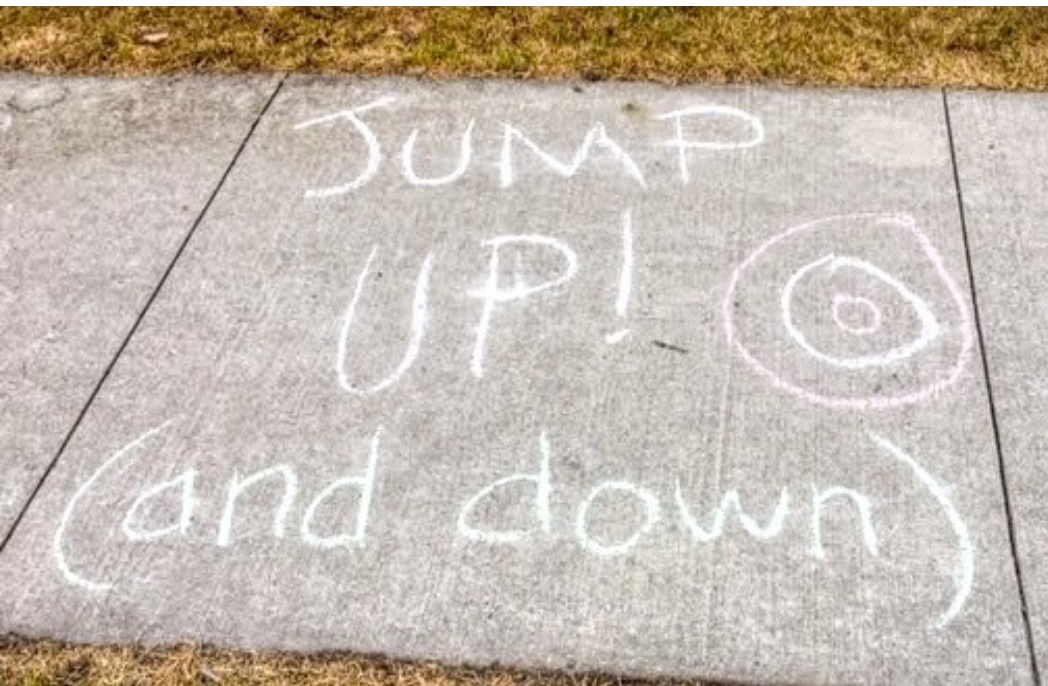 JUMP
UP!
(and down)